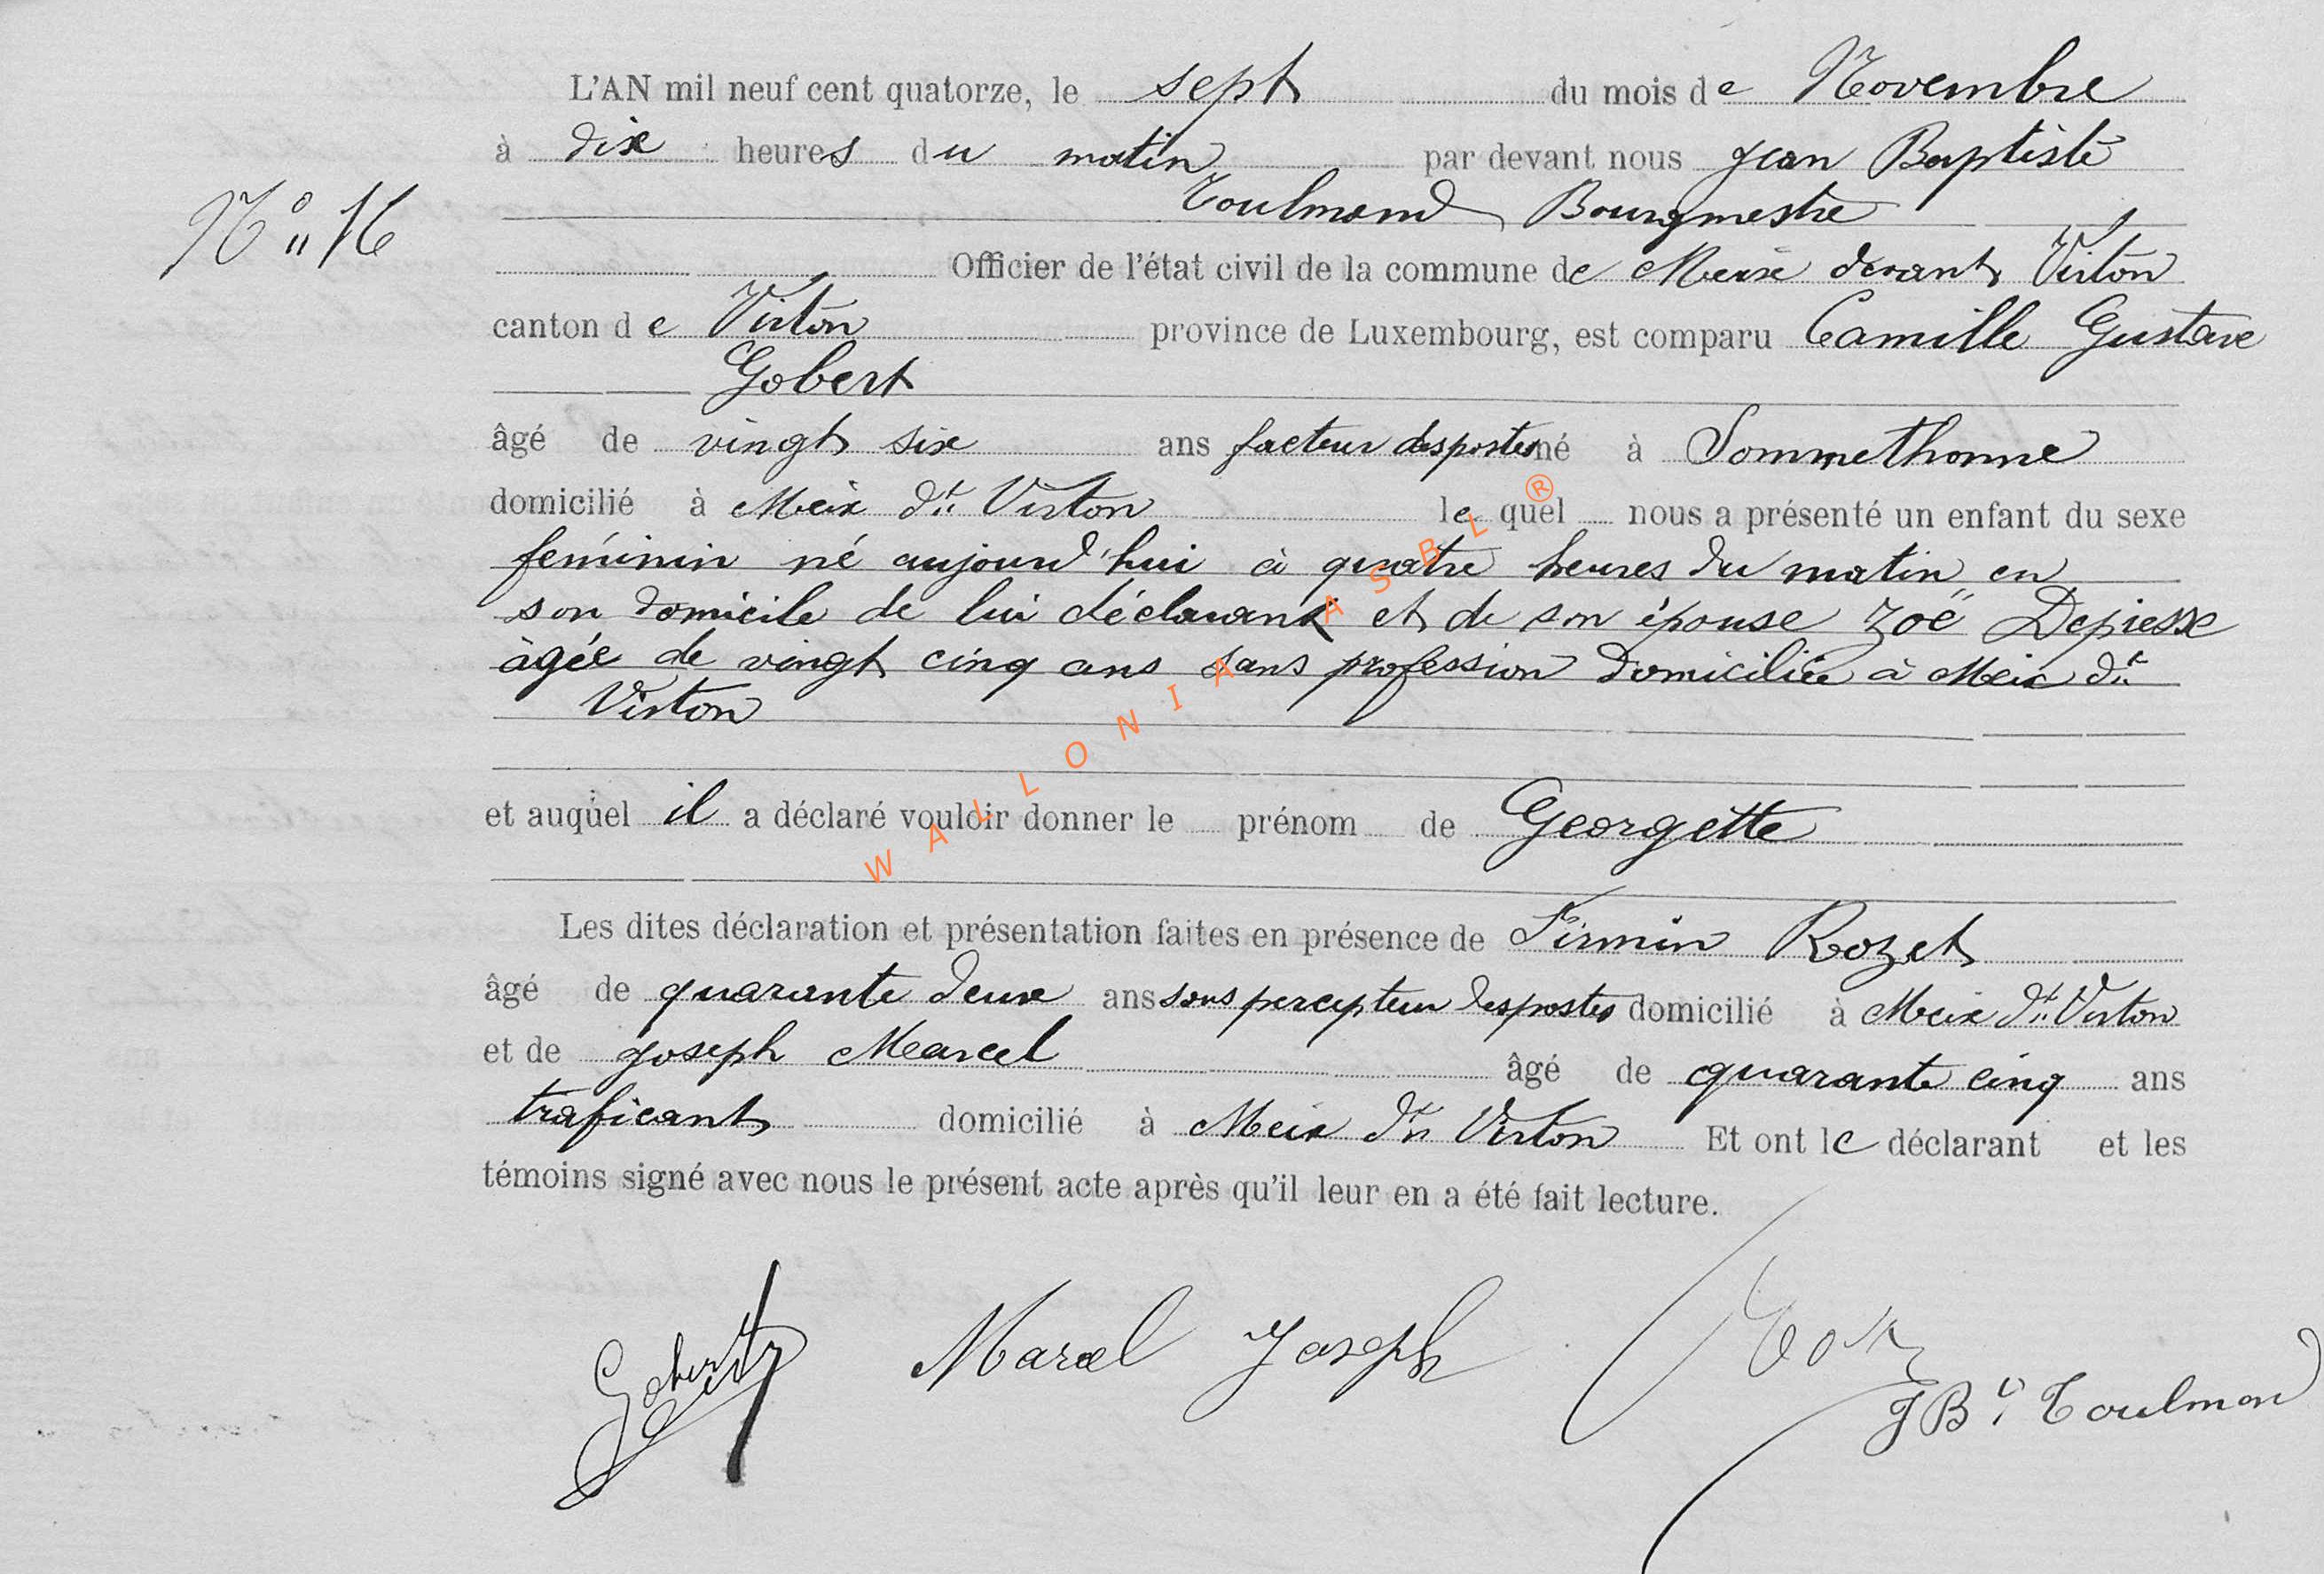 L'AN mil neuf cent quatorze, le sept du mois de Novembre
à dix heures du matin par devant nous Jean Baptiste
Toulmond Bourgmestre
N° 16
Officier de l'état civil de la commune de Meix devant Virton
canton de Virton province de Luxembourg, est comparu Camille Gustave
Gobert
âgé de vingt six ans facteur des postes né à Sommethonne
domicilié à Meix dt Virton lequel nous a présenté un enfant du sexe
feminin né aujourd'hui à quatre heures du matin en
son domicile de lui déclarant et de son épouse Zoé Depiesse
âgée de vingt cinq ans sans profession domiciliée à Meix dt
Virton
et auquel il a déclaré vouloir donner le prénom de Georgette
Les dites déclaration et présentation faites en présence de Firmin Rozet
âgé de quarante deux ans sous percepteur des postes domicilié à Meix dt Virton
et de Joseph Marcel âgé de quarante cinq ans
traficant domicilié à Meix dt Virton Et ont le déclarant et les
témoins signé avec nous le présent acte après qu'il leur en a été fait lecture.
Gobert Marcel Joseph
JBte Toulmond
WALLONIA ASBL ®